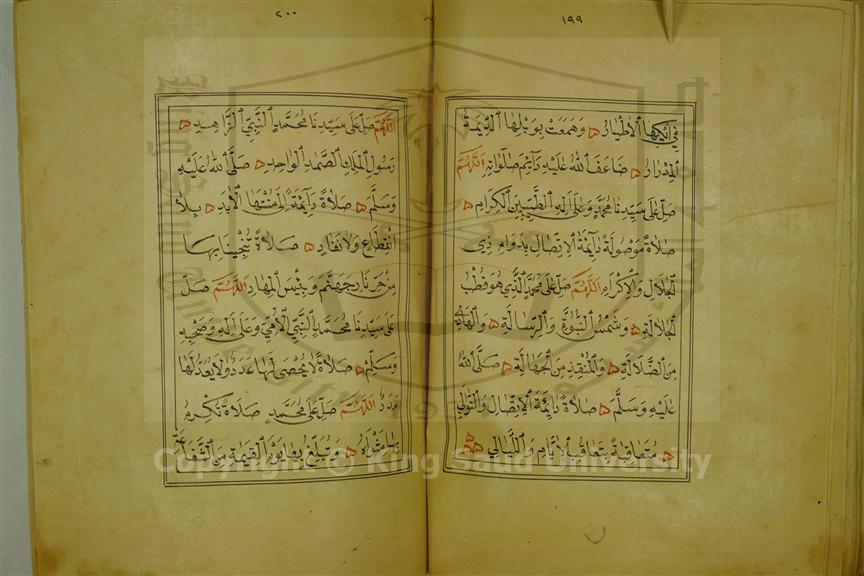 ١٩٩
في أيكها الأطيار وهمعت بوبلها الديمة
المدرار ضاعف الله عليه دائم صلواته اللهم
صل على سيدنا محمد وعلى اله الطيبين الكرام
صلاة موصولة دائمة الاتصال بدوام ذي
الجلال والاكرام اللهم صل على محمد النبي هو قطب
الجلالة وشمس النبوة والرسالة والهادي
من الضلالة والمنقذ من الجهالة صلى الله
عليه وسلم صلاة دائمة الاتصال والتوالي
متعاقبة بتعاقب الايام والليالي
٢٠٠
اللهم صل على سيدنا محمد النبي الزاهد
رسول الملك الصمد الواحد صلى الله عليه
وسلم صلاة دائمة لا منتها الأبد بلا
انقطاع ولا نفاد صلاة تنجينا بها
من حر نار جهنم وبئس المهاد اللهم صل
على سيدنا محمد النبي الأمي وعلى اله وصحبه
وسلم صلاة لا يحصى لها عدد ولا يعد لها
مدد اللهم صل على محمد صلاة تكرم
بها مثواه وتبلغ بها يوم القيمة من الشفاعة
Copyright © King Saud University